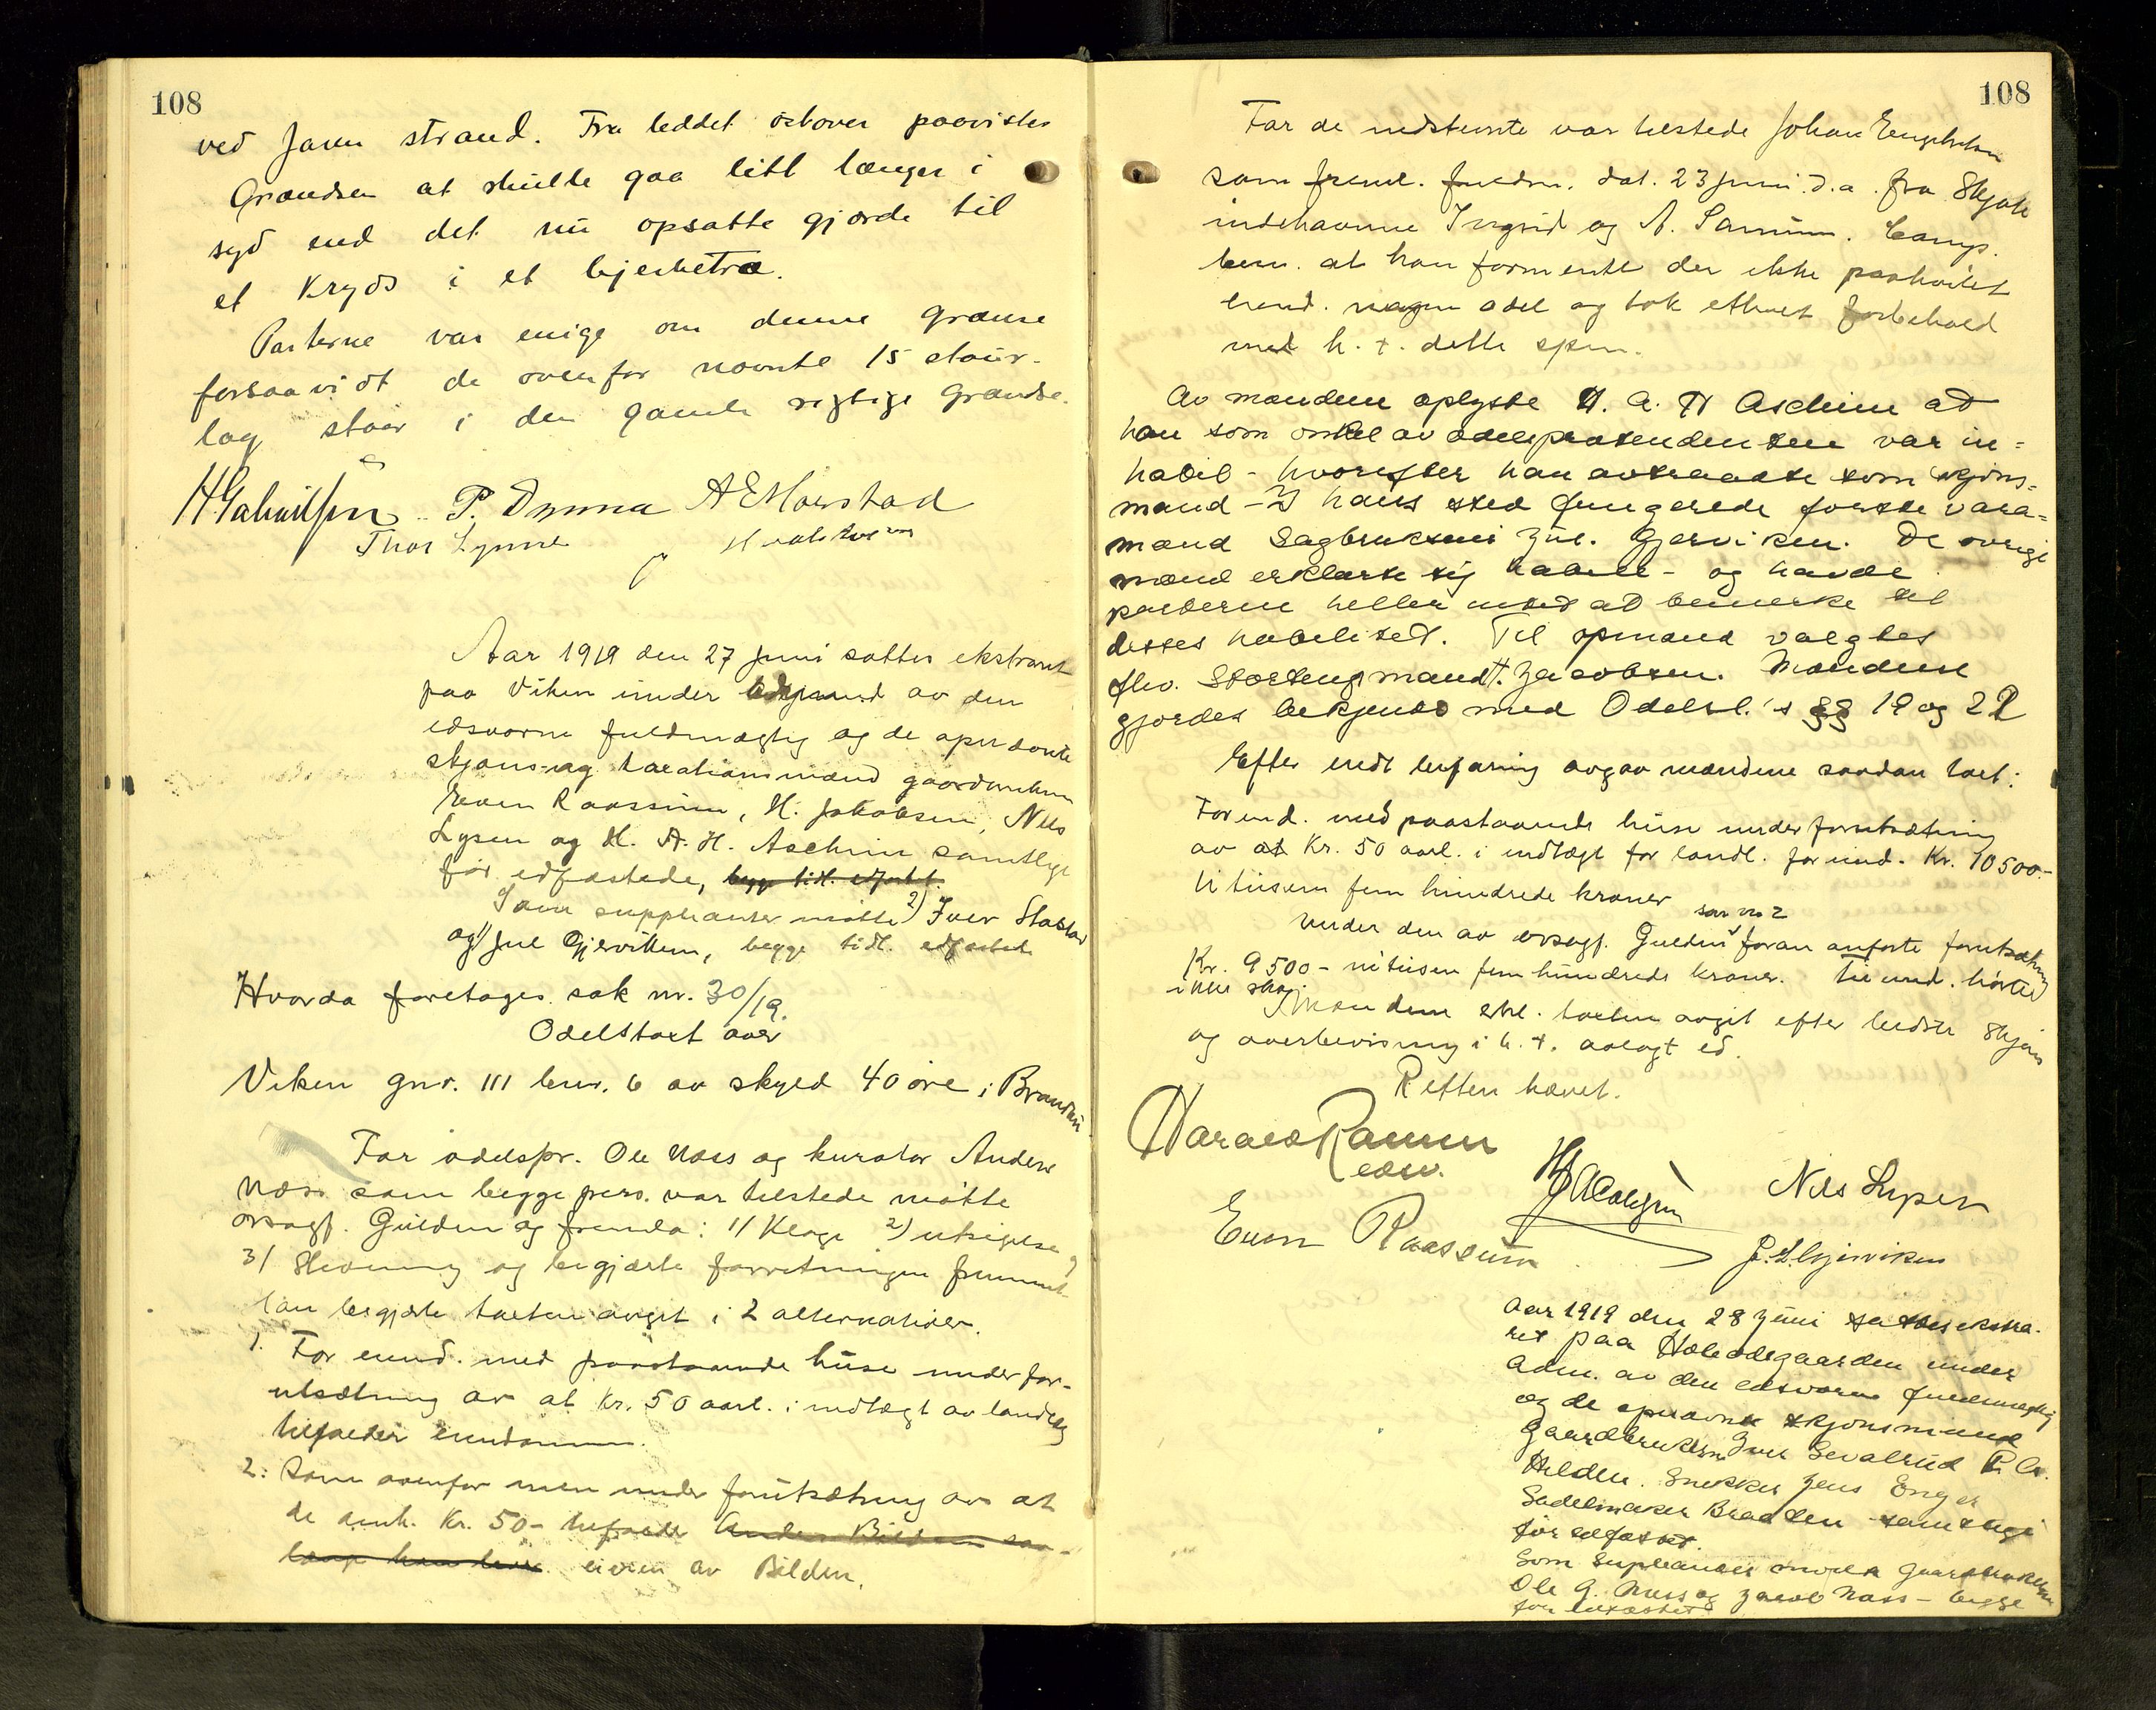 108
ved Jaren strand. Fra leddet østover paavistes
Grændsen at skulle gaa litt længer i
syd end det nu opsatte gjærde til
et Kryds i et bjerketræ.
Parterne var enige om denne grænse
forsaavidt de ovenfor nævnte 15 staur-
lag staar i den gamle rigtige grændse.
P. Dynna A E Morstad
Thor Lynne
Aar 1919 den 27 juni sattes ekstraret
paa Viken under av den
edsvorne fuldmægtig og de opnævnte
skjøns- og taxationsmænd gaardbrukerne
Even Raassum, H. Jakobsen, Nils
Lysen og H. A. H. Aschim samtlige
før edfæstede, begge tidl. edfæstet.
Som suppleanter møtte 2) Iver Stabstad
og 1) Jul Gjerviken, begge tidl. edfæstede
Hvorda foretages sak nr. 30/19.
Odelstaxt over
Viken gnr. 111 brnr. 6 av skyld 40 øre i Brandbu
For odelspr. Ole Næss og kurator Anders
Næss som begge pers. var tilstede møtte
orsagf. Gulden og fremla: 1/ Klage 2) utsigelse,
3/ Stevning og begjærte forretningen fremmet.
Han begjærte taxten avgit i 2 alternativer.
1. For eiend. med paastaaende huse under for-
utsætning av at Kr. 50 aarl. i indtægt av landl.
tilfalder eiendommen.
2: Som ovenfor men under forutsætning av at
de omh. Kr. 50- tilfalder Anders Bilden saa-
længe han lever eieren av Bilden.
108
For de indstevnte var tilstede Johan Engebretsen
som freml. fuldm. dat. 23 juni d.a. fra Skjøte
indehaverne Ingrid og A. Camp.
bem. at han formente der ikke paahvilet
eiend. nogen odel og tok ethvert forbehold
med h. t. dette spm.
Av mændene oplyste H. A. H Aschim ad
han som onkel av odelsprætendentene var in=
habil - hvorefter han avtraadte som skjøns=
mand - I hans sted fungerede første vara=
mand Sagbrukseier Jul. Gjerviken. De øvrige
mænd erklærte sig habile - og havde
parterne heller intet ad bemerke til
desses habilited. Til opmand valgtes
fhv. Stortingsmand H. Jacobsen. Mændene
gjordes bekjendt med Odelsl.'s §§ 19 og 22
Efter endt befaring avgav mændene saadan taxt:
For eiend. med paastaaende huse under forutsætning
av at Kr. 50 aarl. i indtægt for landl. for eiend. Kr. 10500.-
ti tusen fem hundrede kroner
Under den av orsagf. Gulden som nr 2 foran anførte forutsætning
Kr. 9500 - nitusen fem hundrede kroner. Til eiend. hørte
ikke skog.
Mændene erkl. taxten avgit efter bedste Skjøn
og overbevisning i h. t. avlagt ed.
Retten hævet.
Harald Ramm
edsv.
H Jacobsen Nils Lysen
Even Raassum J. L. Gjerviken
Aar 1919 den 28 Juni sattes ekstra-
ret paa Høleødegaarden under
Adm. av den edsvorne fuldmægtig
og de opnævnte skjønsmænd
Gaardbrukerne Iver Sevalrud P. Chr.
Hilden. Snekker Jens Enger
Sadelmaker Bradden - samtlige
før edfæstet.
Som Supleanter møtte Gaardbrukerne
Ole G. Næss og Jacob Næss - begge
før edfæstet